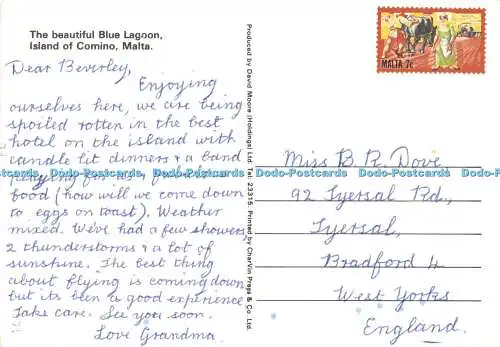 The beautiful Blue Lagoon,
Island of Comino, Malta.
Dear Beverley,
Enjoying
ourselves here, we are being
spoiled rotten in the best
hotel on the island with
candle lit dinners & a band
playing for us, fabulous
food (how will we come down
to eggs on toast). Weather
mixed. We've had a few showers
2 thunderstorms & a lot of
sunshine. The best thing
about flying is coming down
but its been a good experience
Take care. See you soon.
Love Grandma.
Produced by David Moore (Holdings) Ltd. Tel: 23315 Printed by CharVin Press & Co. Ltd.
MALTA 7c
Miss B. R. Dove,
92 Tyersal Rd.,
Tyersal,
Bradford 4
West Yorks
England.
Dodo-Postcards Dodo-Postcards Dodo-Postcards Dodo-Postcards